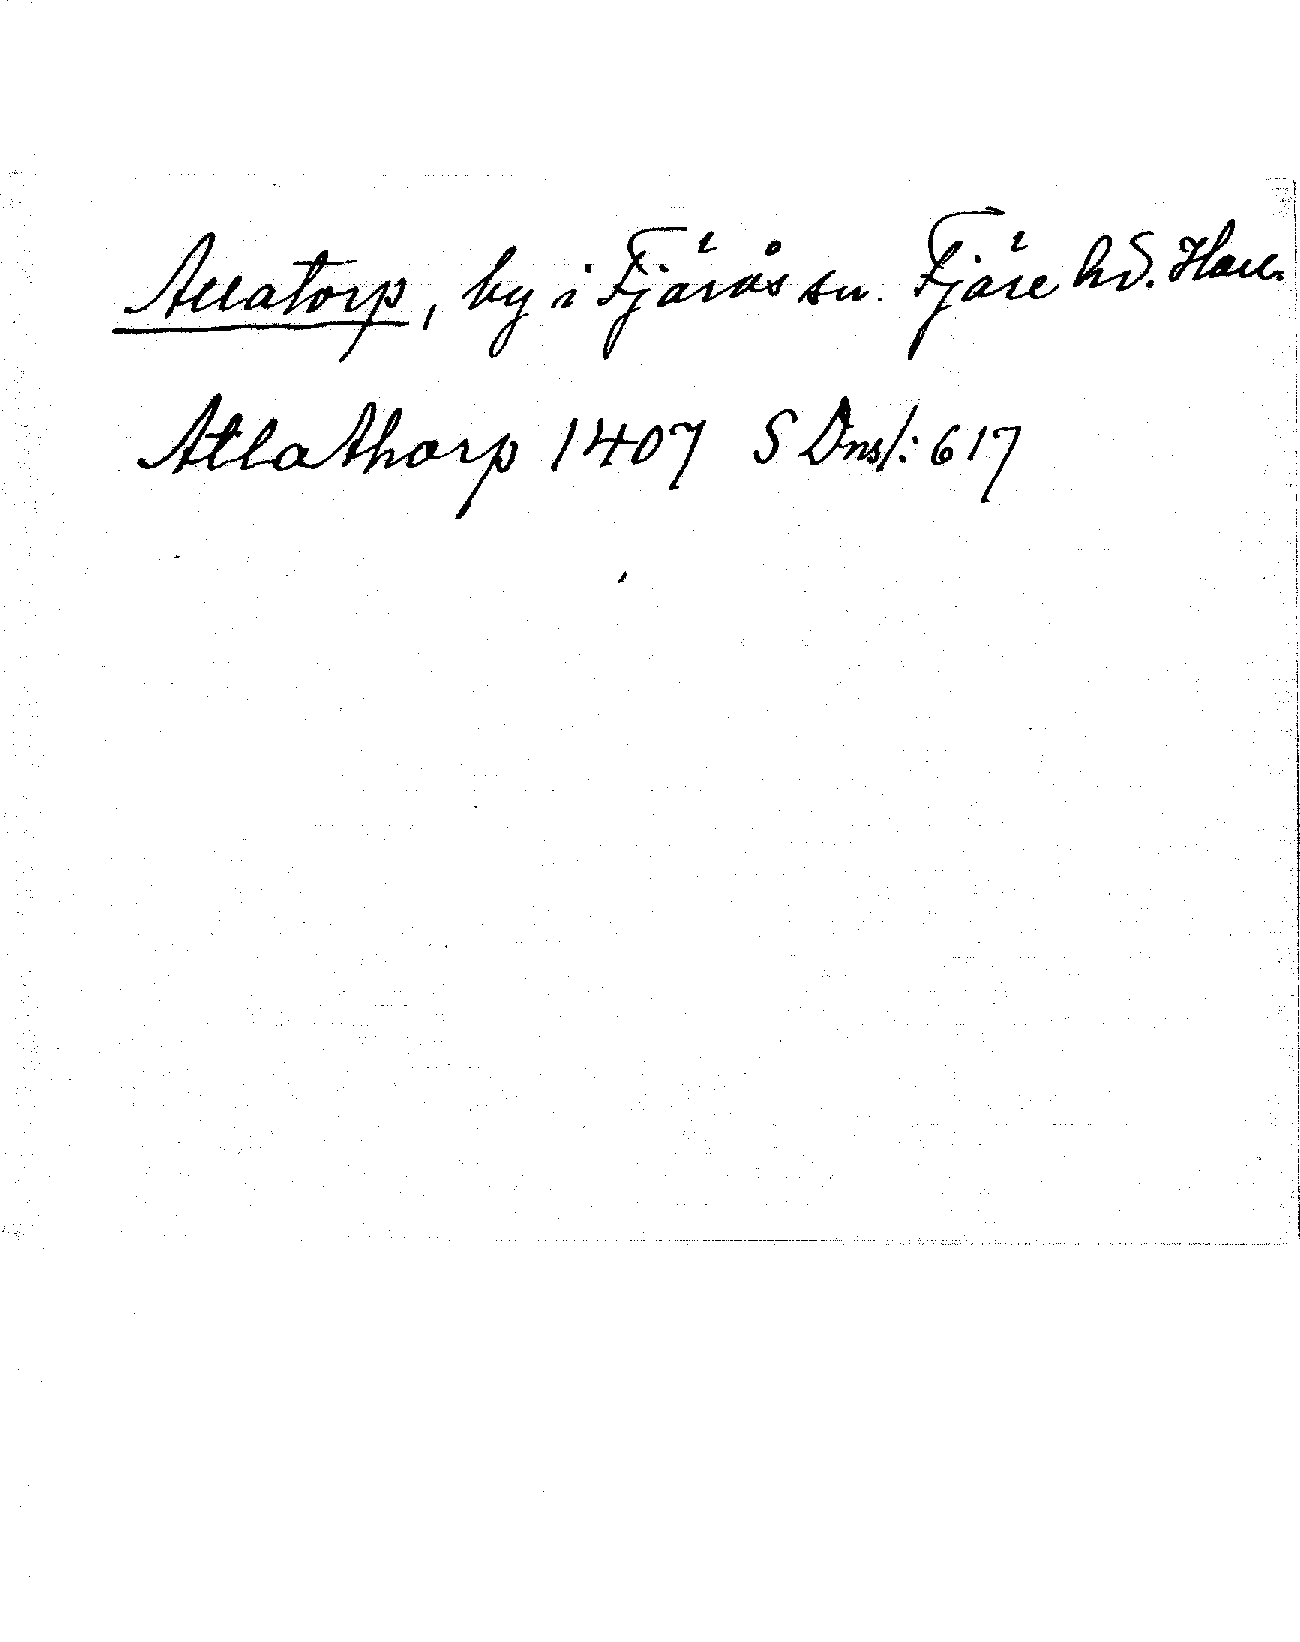 Allatorp, by i Fjärås sn. Fjäre hd. Hall.
Atlathorp 1407 SDns1: 617